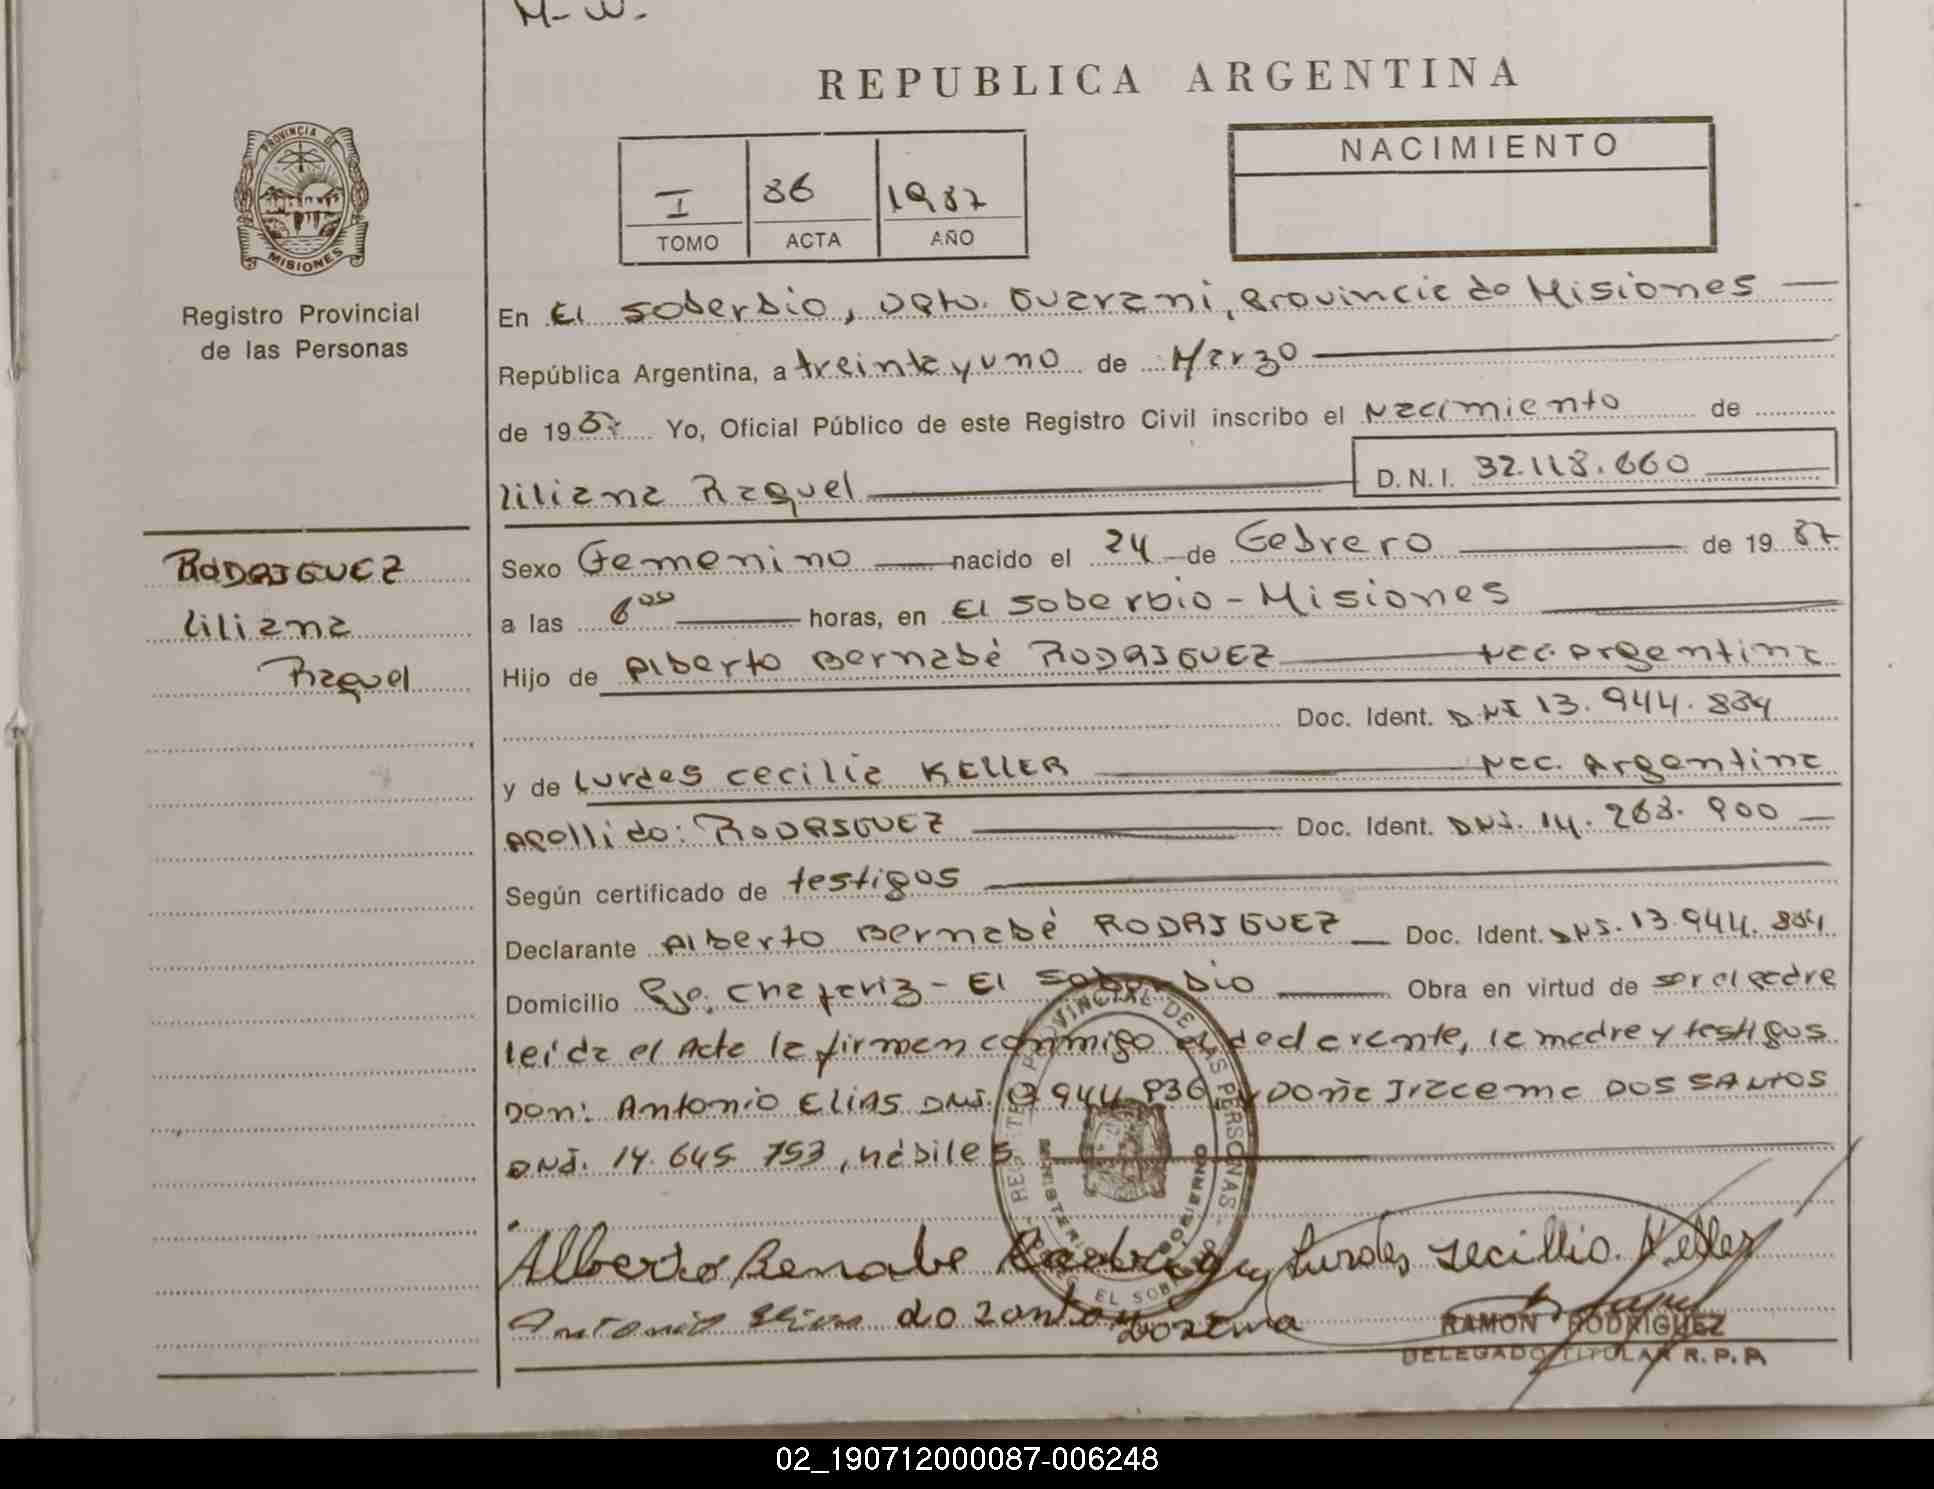 M- W-
REPUBLICA ARGENTINA
PROVINCIA DE
MISIONES
Registro Provincial
de las Personas
I 86 1987
TOMO ACTA AÑO
NACIMIENTO
En El Soberbio, Dpto. Guarani, Provincia de Misiones
República Argentina, a treinta y uno de Marzo
de 1987 Yo, Oficial Público de este Registro Civil inscribo el Nacimiento de
Liliana Raquel D.N.I. 32.118.660
RODRIGUEZ
Liliana
Raquel
Sexo Femenino nacido el 24 de Febrero de 1987
a las 6 00 horas, en El Soberbio - Misiones
Hijo de Alberto Bernabé RODRIGUEZ Nac. Argentina
Doc. Ident. DNI 13.944.884
y de Lurdes Cecilia KELLER Nac. Argentina
Apellido: RODRIGUEZ Doc. Ident. DNI. 14.268.900
Según certificado de testigos
Declarante Alberto Bernabé RODRIGUEZ Doc. Ident. DNI. 13.944.884
Domicilio Pje. Chafariz - El Soberbio Obra en virtud de ser el padre
leída el Acta la firman conmigo el declarente, la madre y testigos
Don: Antonio ELIAS DNI. 944 y Doña Iraceme DOS SANTOS
DNI. 14.645.753, hábiles
REGISTRO PROVINCIAL DE LAS PERSONAS
MINISTERIO GOBIERNO
EL SOBERBIO
Alberto Benabe Rodriguez Lurdes Lecillia Keller
Antonio Elias do zantos
RAMON RODRIGUEZ
DELEGADO TITULAR R.P.P.
02_190712000087-006248